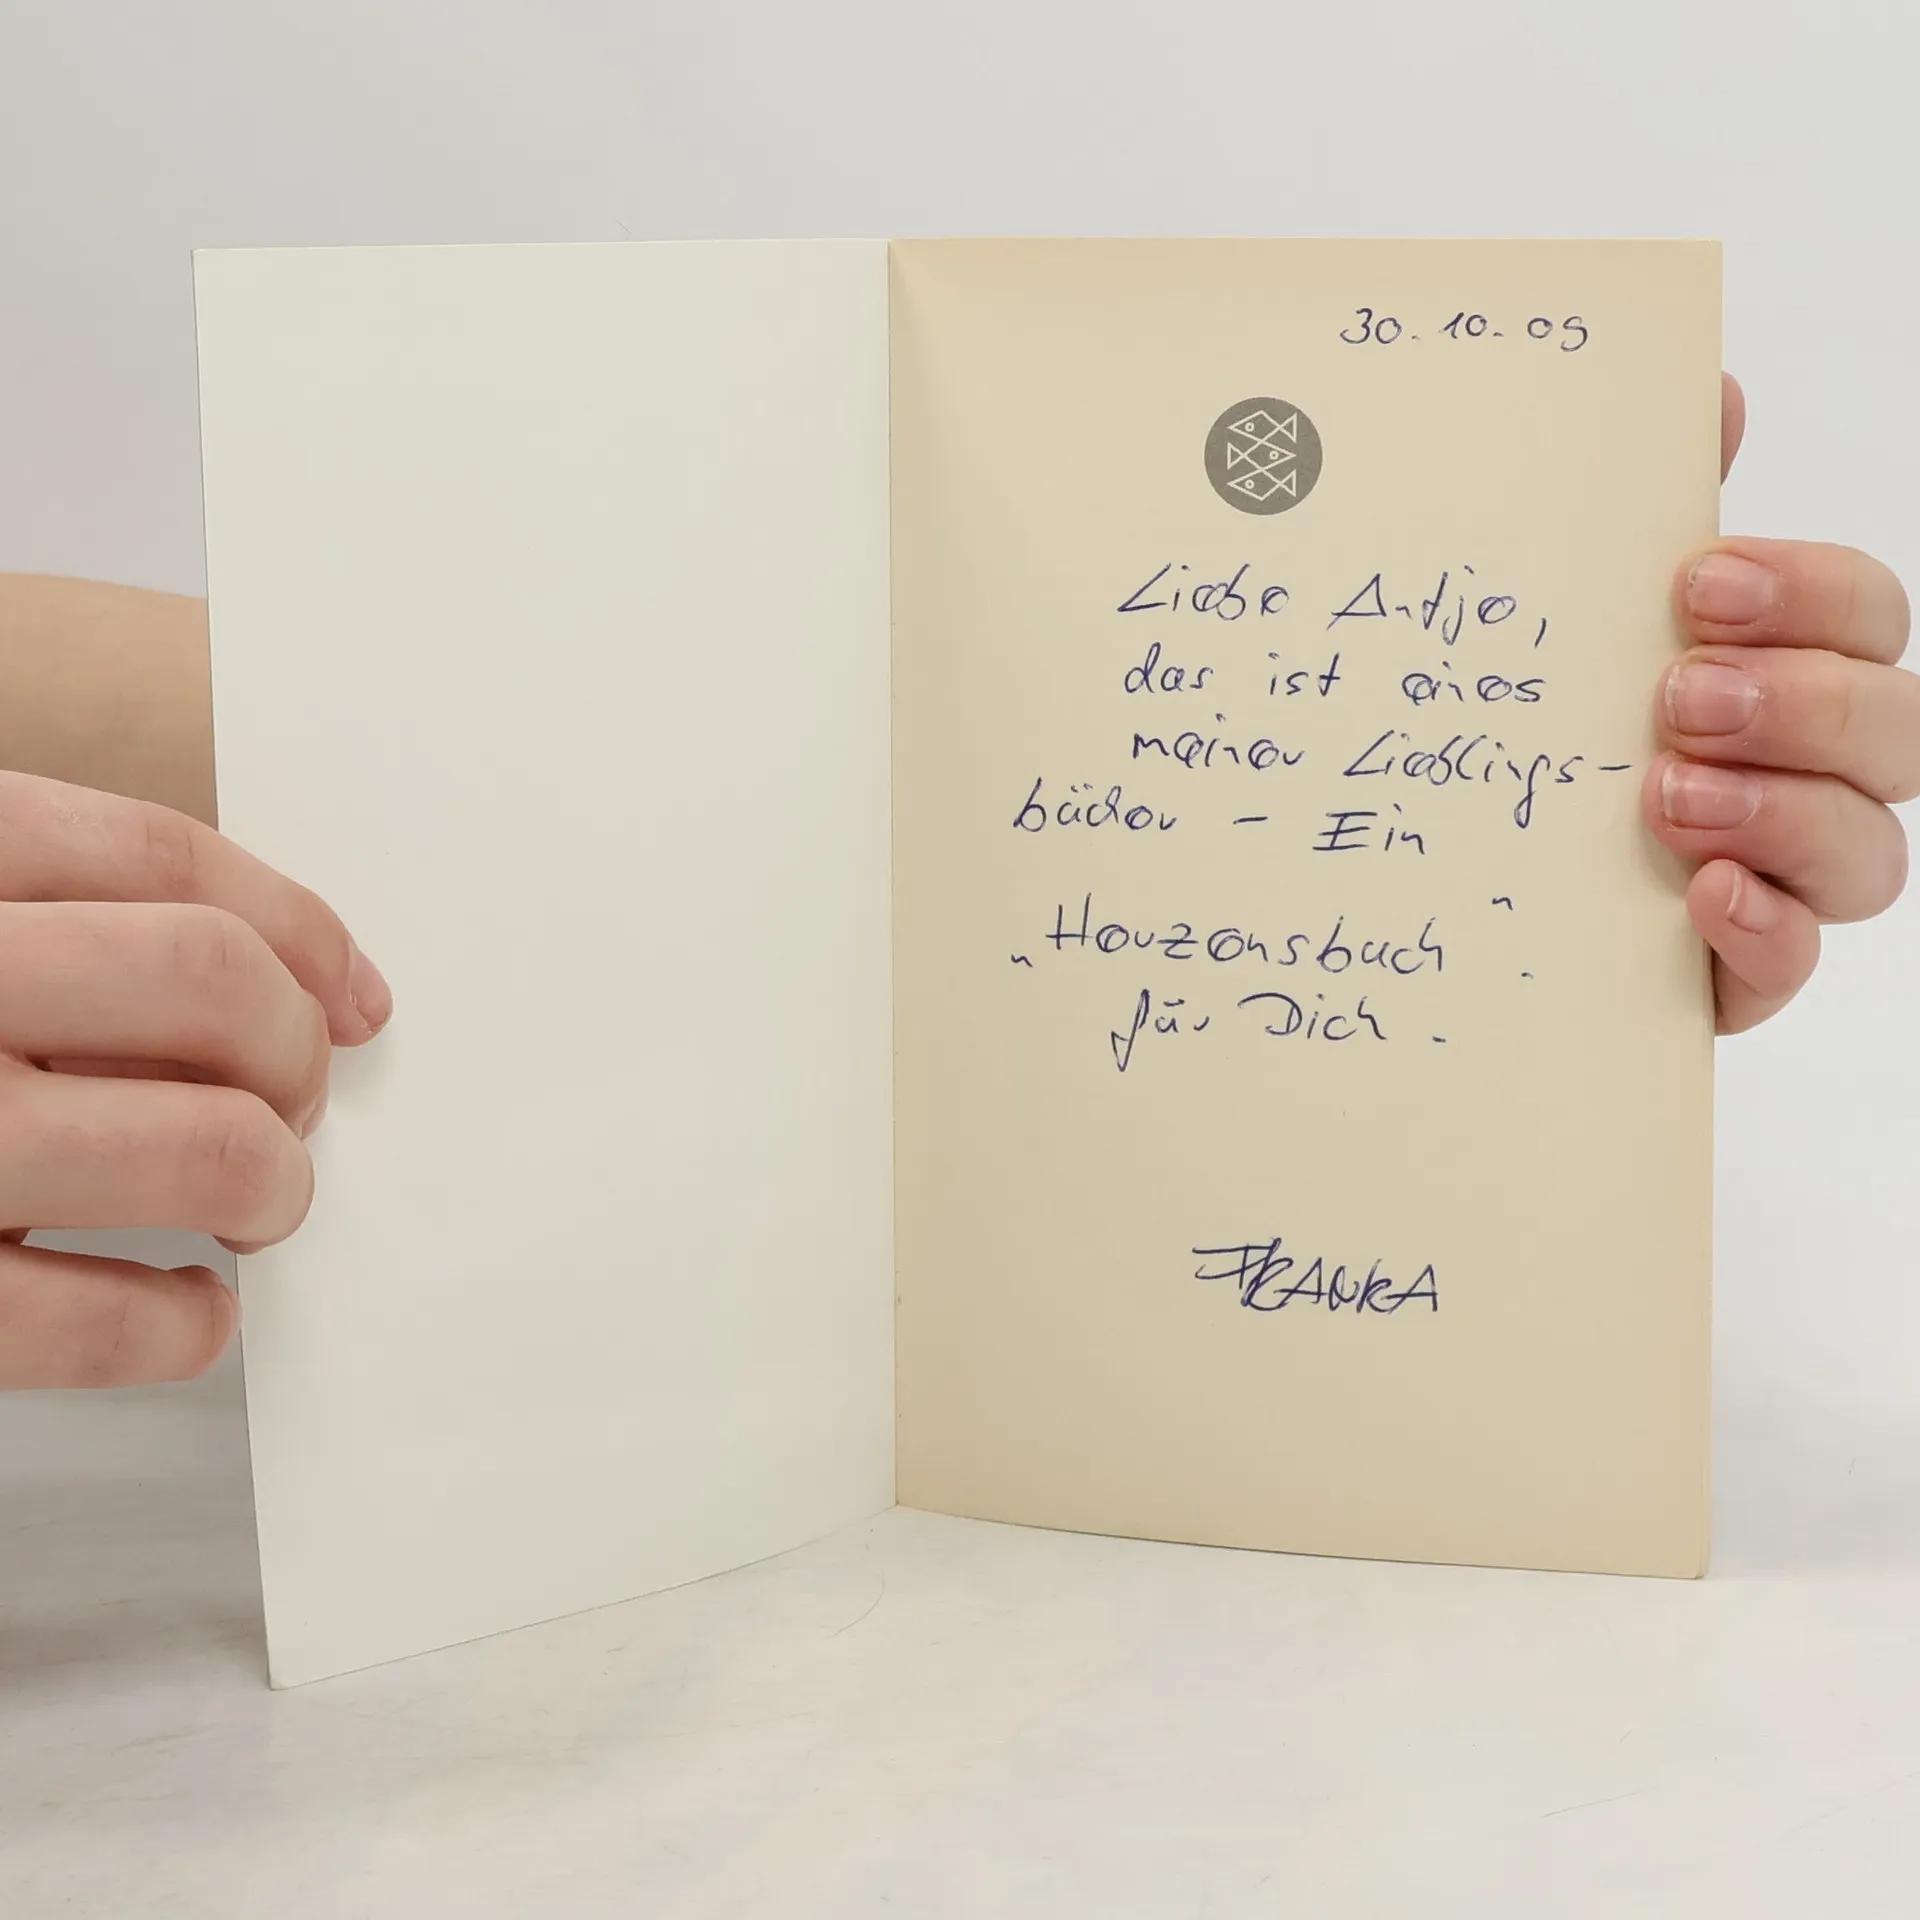 30.10.09
Liebe Antje,
das ist eines
meiner Lieblings-
bücher - Ein
„Herzensbuch“.
für Dich.
FRANKA